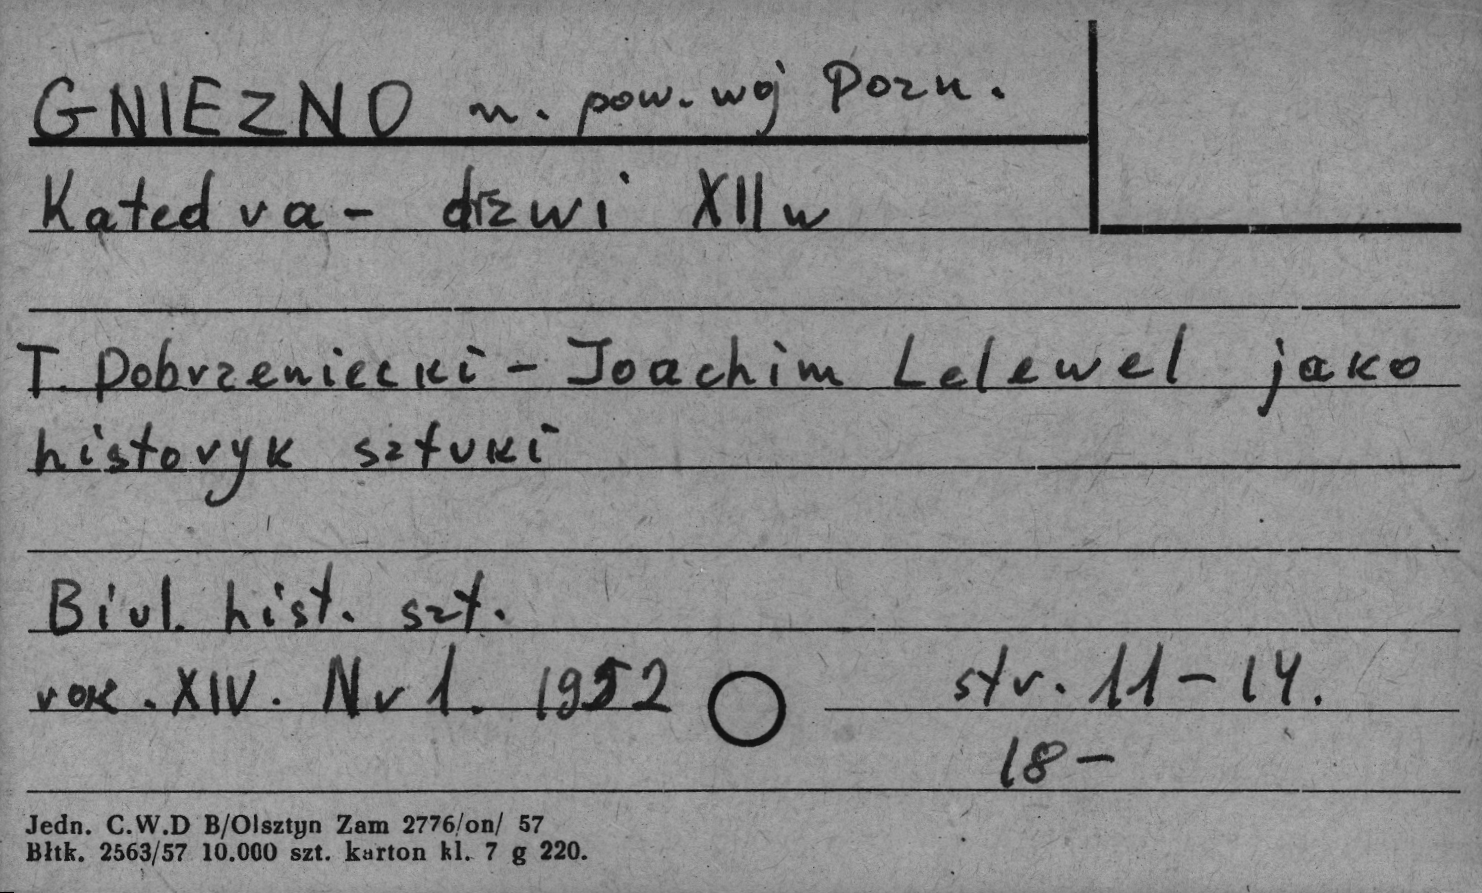 GNIEZNO m. pow. woj Pozn.
Katedra - drzwi XII w
T. Dobrzeniecki - Joachim Lelewel jako
historyk sztuki
Biul. hist. szt.
rok. XIV. Nr 1. 1952 str. 11-14.
18-
Jedn. C.W.D B/Olsztyn Zam 2776/on/ 57
Błtk. 2563/57 10.000 szt. karton kl. 7 g 220.